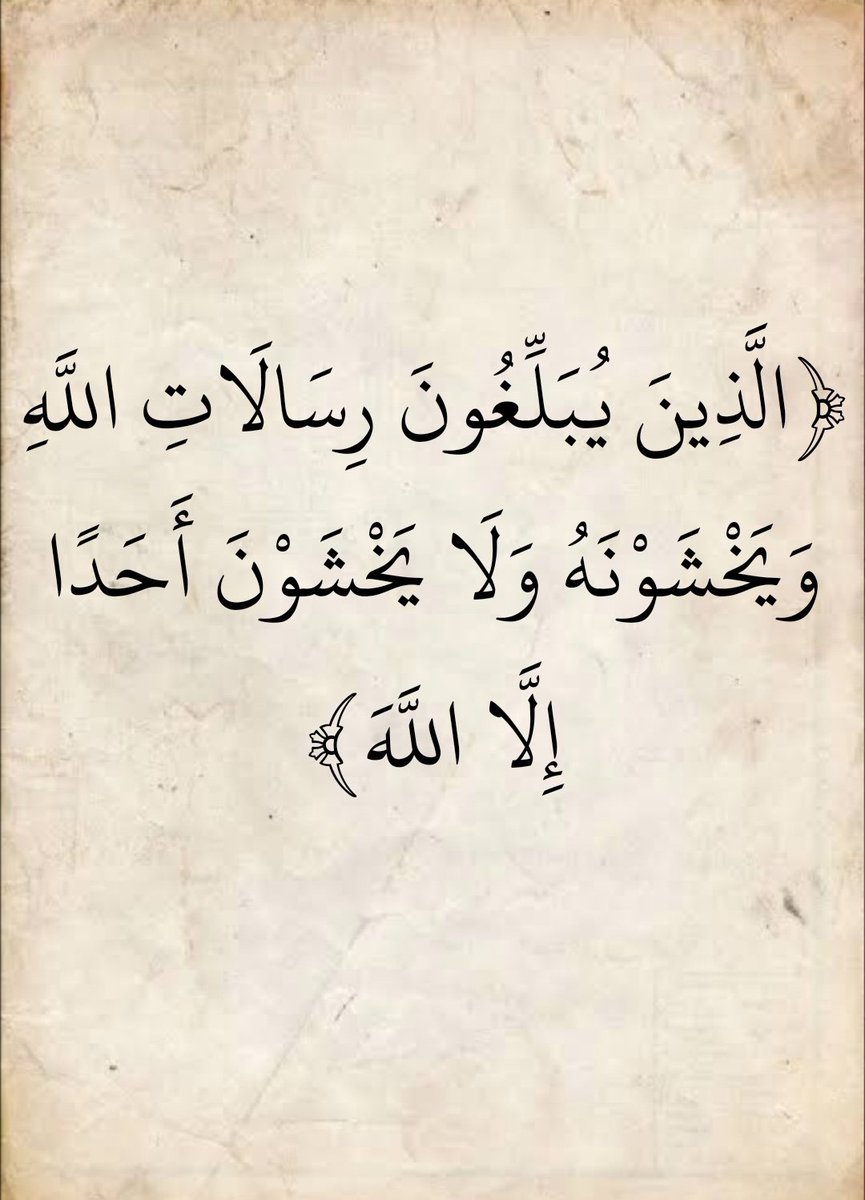 ﴿الَّذِينَ يُبَلِّغُونَ رِسَالَاتِ اللَّهِ
وَيَخْشَوْنَهُ وَلَا يَخْشَوْنَ أَحَدًا
إِلَّا اللَّهَ﴾